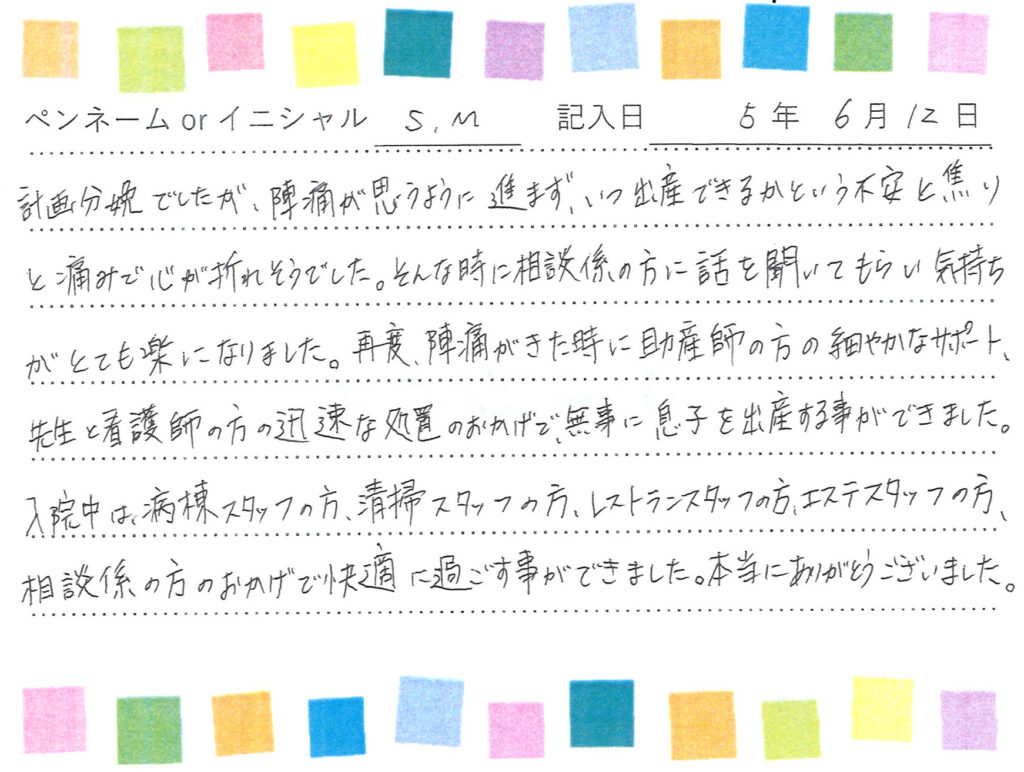 ペンネーム or イニシャル S.M 記入日 5年 6月12日
計画分娩でしたが、陣痛が思うように進まず、いつ出産できるかという不安と焦り
と痛みで心が折れそうでした。そんな時に相談係の方に話を聞いてもらい気持ち
がとても楽になりました。再度、陣痛がきた時に助産師の方の細やかなサポート、
先生と看護師の方の迅速な処置のおかげで、無事に息子を出産する事ができました。
入院中は、病棟スタッフの方、清掃スタッフの方、レストランスタッフの方、エステスタッフの方、
相談係の方のおかげで快適に過ごす事ができました。本当にありがとうございました。